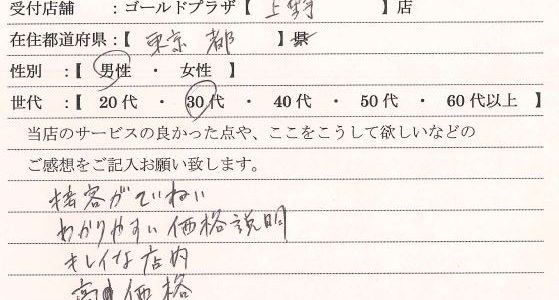 受付店舗 ：ゴールドプラザ【 上野 】店
在住都道府県：【 東京 都 】県
性別 ：【 男性 ・ 女性 】
世代 ：【 20代 ・ 30代 ・ 40代 ・ 50代 ・ 60代以上 】
当店のサービスの良かった点や、ここをこうして欲しいなどの
ご感想をご記入お願い致します。
接客がていねい
わかりやすい価格説明
キレイな店内
高い価格